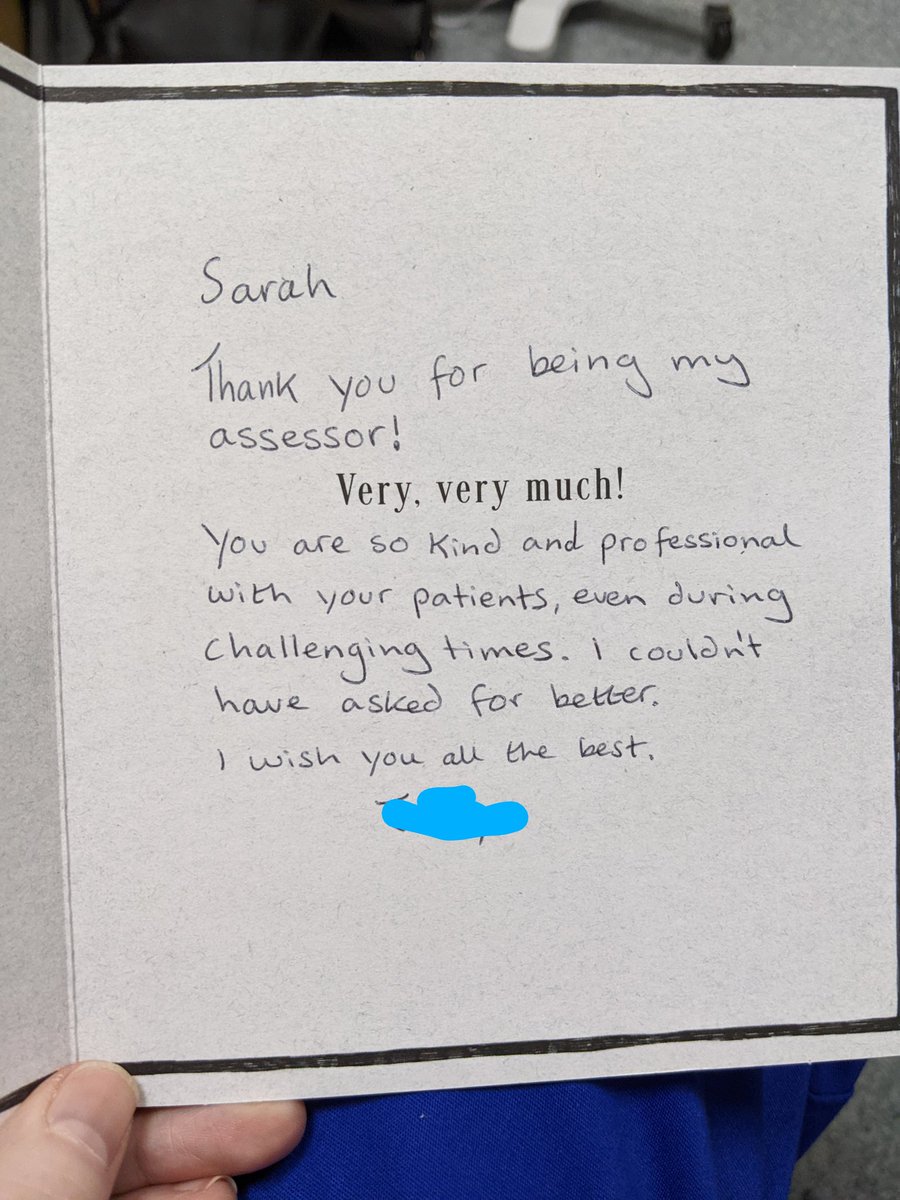 Sarah
Thank you for being my
assessor!
Very, very much!
You are so kind and professional
with your patients, even during
challenging times. I couldn't
have asked for better.
I wish you all the best.